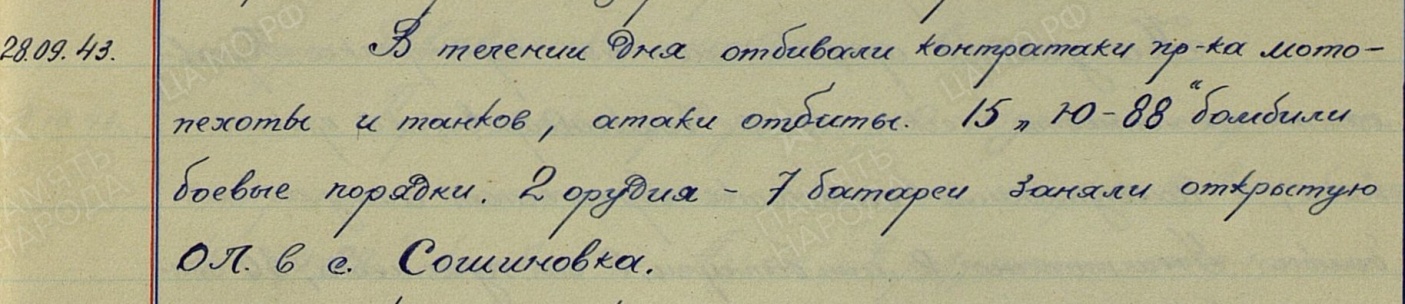 28.09.43. В течении дня отбивали контратаки пр-ка мото-
пехоты и танков, атаки отбиты. 15 „Ю-88“ бомбили
боевые порядки. 2 орудия - 7 батареи заняли открытую
ОП. в с. Сошиновка.